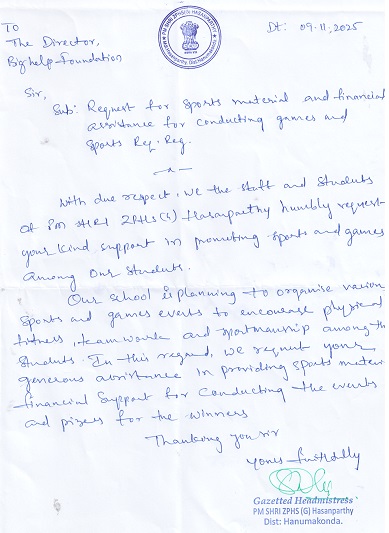 To
Dt: 09.11.2025
The Director,
Bighelp Foundation
PM SHRI ZPHS (G) HASANPARTHY
Sir,
Sub: Request for sports material and financial
assistance for conducting games and
sports Req. Reg.
-x-
With due respect, we the staff and students
of PM SHRI ZPHS(G) Hasanparthy humbly request
your kind support in promoting sports and games
among our students.
Our school is planning to organise various
sports and games events to encourage physical
fitness, teamwork and sportmanship among the
students. In this regard, we request your
generous assistance in providing sports
financial support for conducting the events
and prizes for the winners
Thanking you sir
yours faithfully
Gazetted Headmistress
PM SHRI ZPHS (G) Hasanparthy
Dist: Hanumakonda.